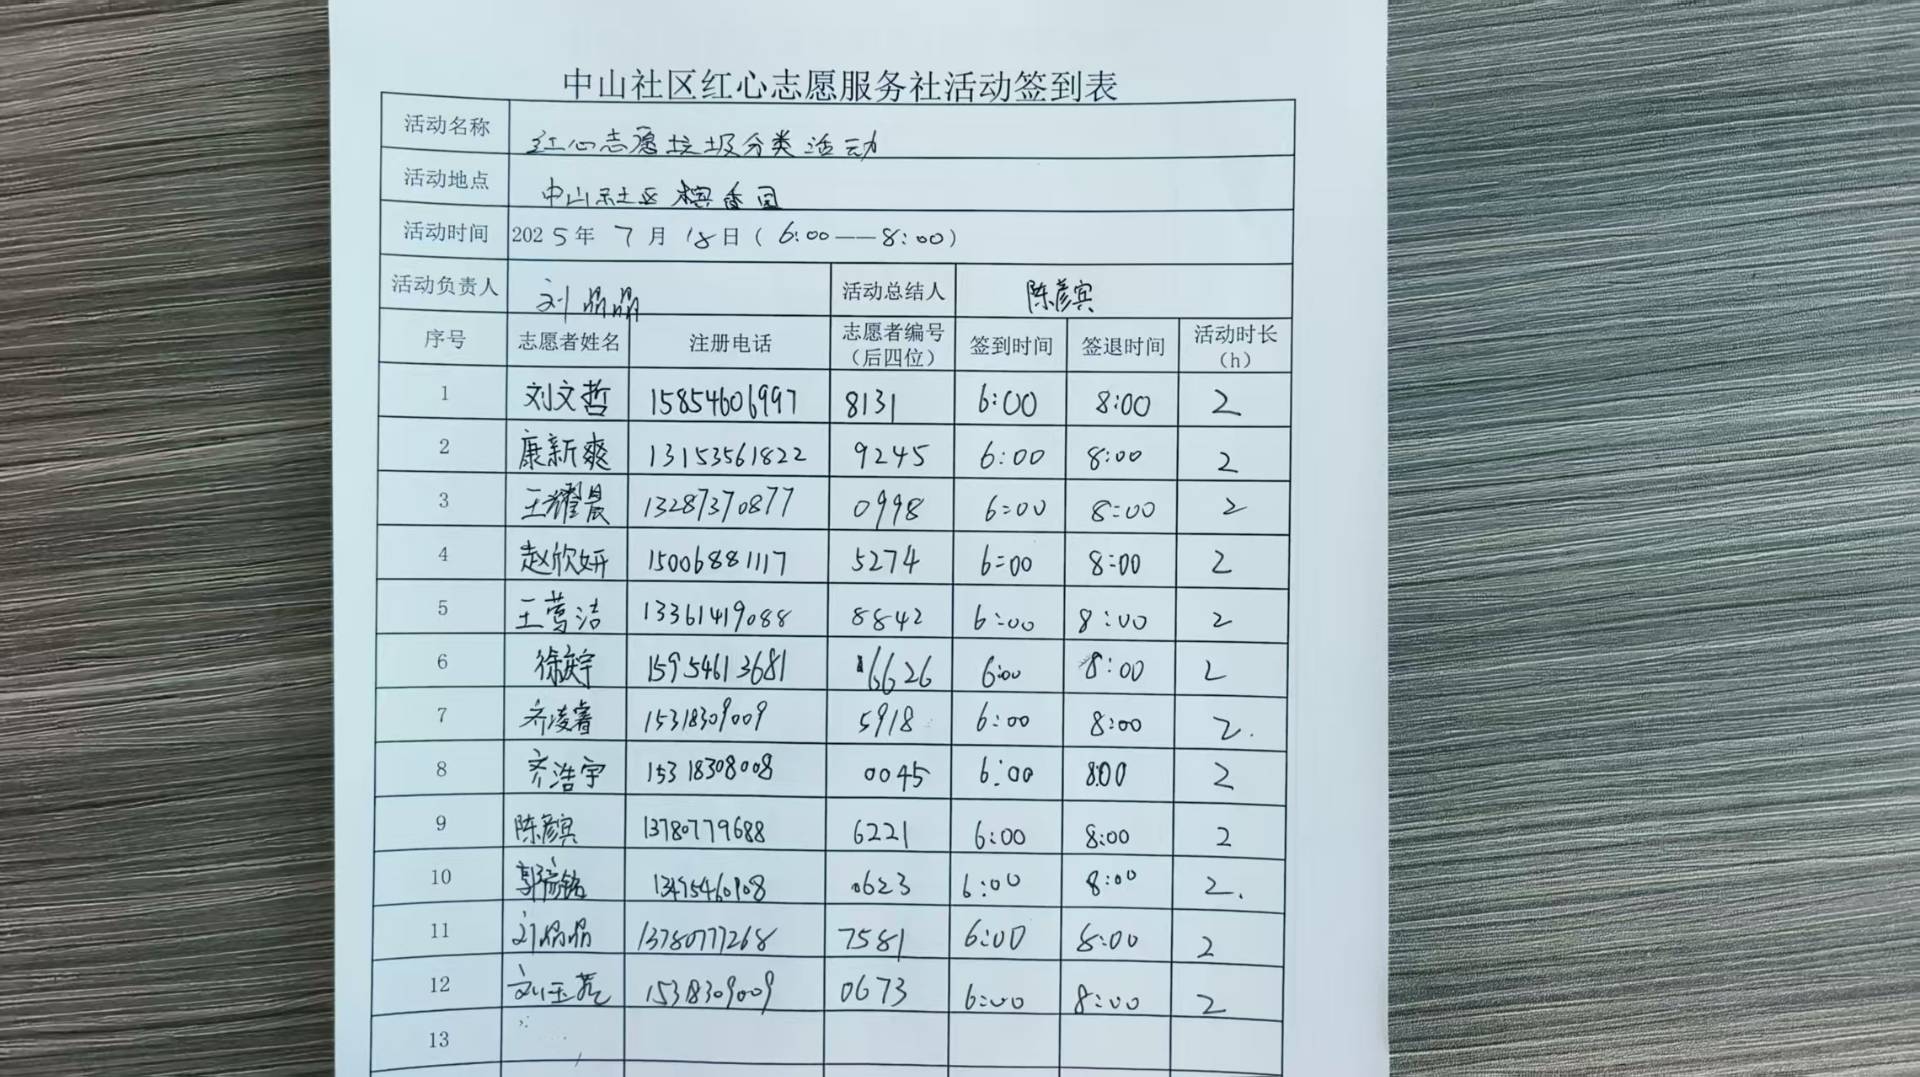 中山社区红心志愿服务社活动签到表
活动名称 红心志愿垃圾分类活动
活动地点 中山社区槟香园
活动时间 2025年7月18日(6:00——8:00)
活动负责人 刘晶晶 活动总结人 陈彦宾
序号 志愿者姓名 注册电话 志愿者编号(后四位) 签到时间 签退时间 活动时长(h)
1 刘文哲 15854606997 8131 6:00 8:00 2
2 康新爽 13153561822 9245 6:00 8:00 2
3 王耀晨 13287370877 0998 6:00 8:00 2
4 赵欣妍 15006881117 5274 6:00 8:00 2
5 王莺洁 13361419088 8842 6:00 8:00 2
6 徐宇 15954613681 6626 6:00 8:00 2
7 齐凌睿 15318309009 5918 6:00 8:00 2.
8 齐浩宇 15318308008 0045 6:00 8:00 2
9 陈彦宾 13780779688 6221 6:00 8:00 2
10 郭铭 13475460908 0623 6:00 8:00 2.
11 刘晶晶 13780777268 7581 6:00 8:00 2
12 刘玉 15318309009 0673 6:00 8:00 2
13